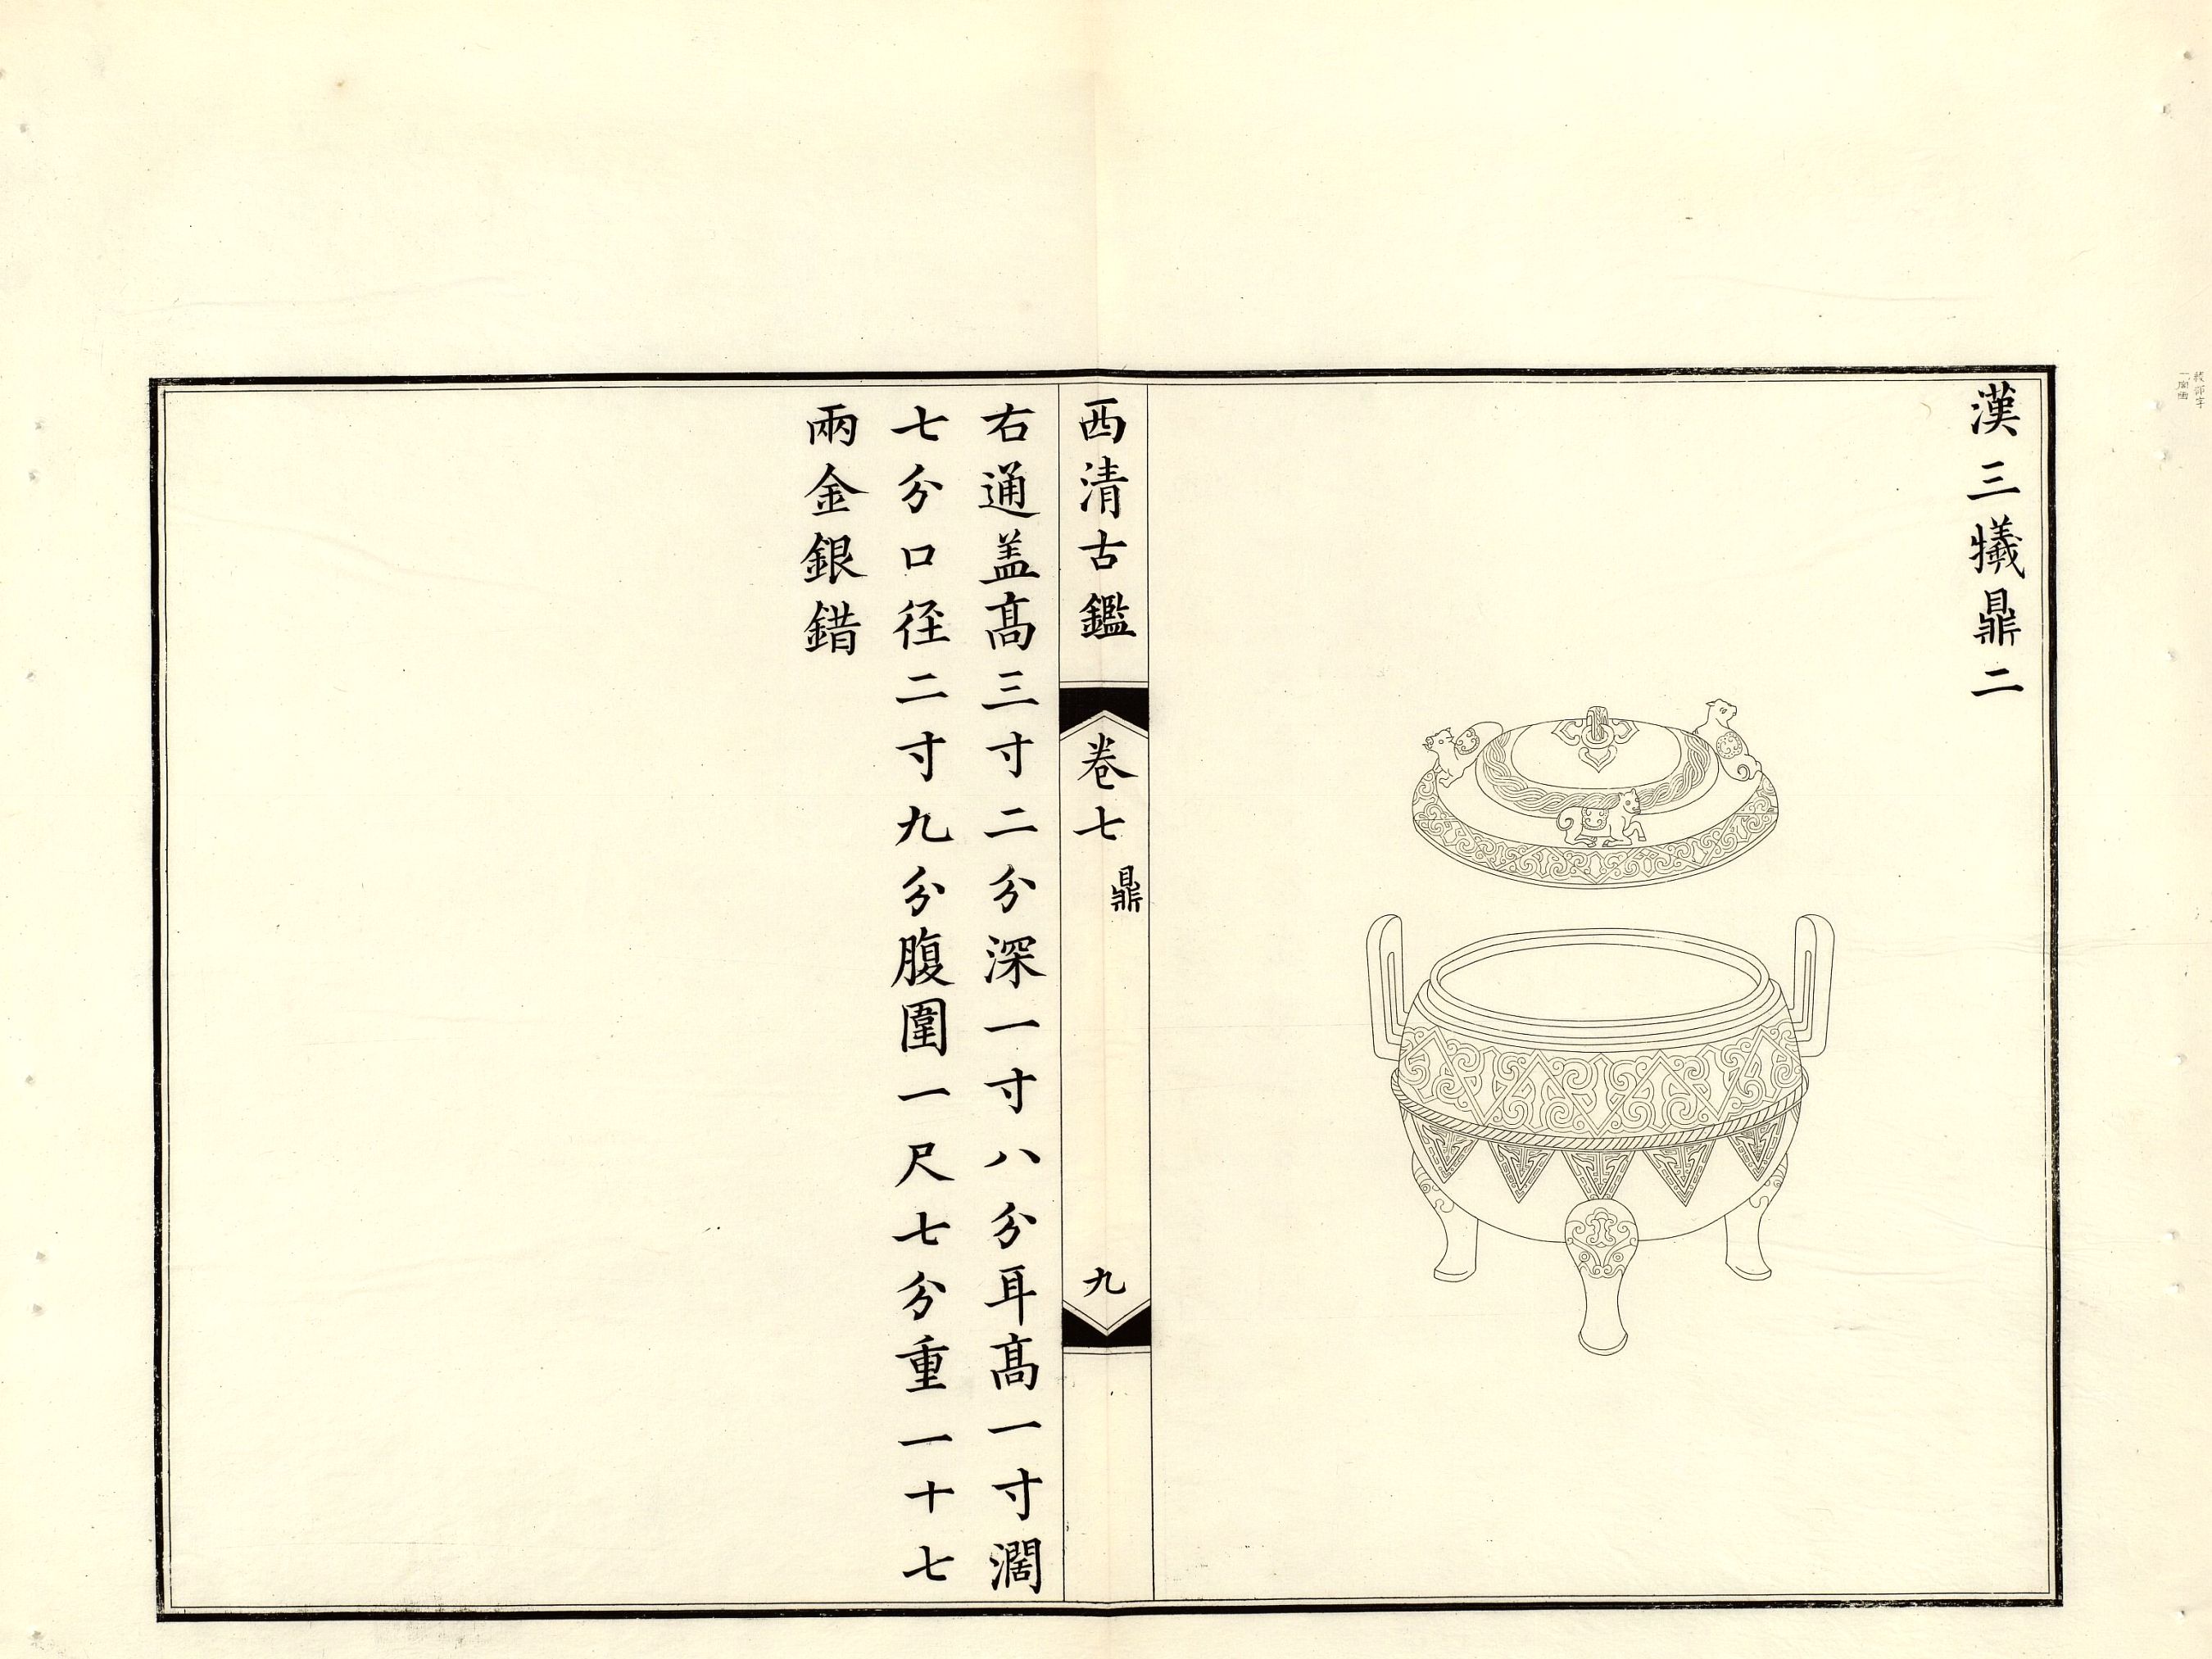 漢三犧鼎二
西清古鑑
卷七
鼎
九
右通盖高三寸二分深一寸八分耳高一寸濶
七分口径二寸九分腹圍一尺七分重一十七
兩金銀錯